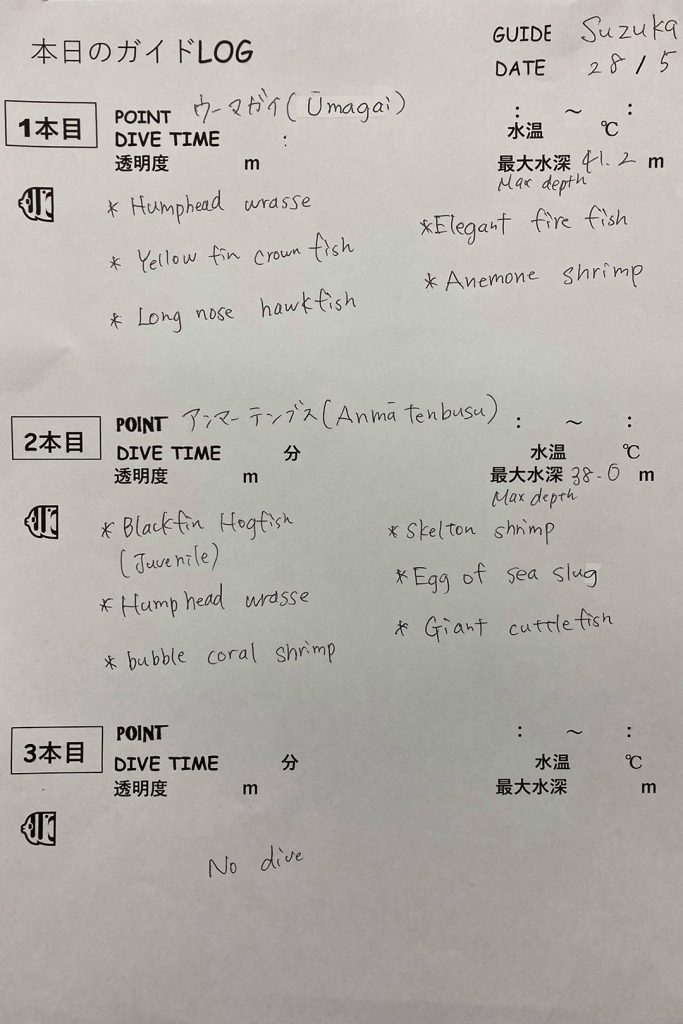 本日のガイドLOG
GUIDE Suzuka
DATE 28/5
1本目
POINT ウーマガイ(Ūmagai) : ～ :
DIVE TIME : 水温 ℃
透明度 m 最大水深 41.2 m
Max depth
* Humphead wrasse
* Elegant fire fish
* Yellow fin crown fish
* Anemone shrimp
* Long nose hawkfish
2本目
POINT アンマーテンブス(Anmā tenbusu) : ～ :
DIVE TIME 分 水温 ℃
透明度 m 最大水深 38.0 m
Max depth
* Blackfin Hogfish
(Juvenile)
* Skelton shrimp
* Egg of sea slug
* Humphead wrasse
* Giant cuttlefish
* bubble coral shrimp
3本目
POINT : ～ :
DIVE TIME 分 水温 ℃
透明度 m 最大水深 m
No dive